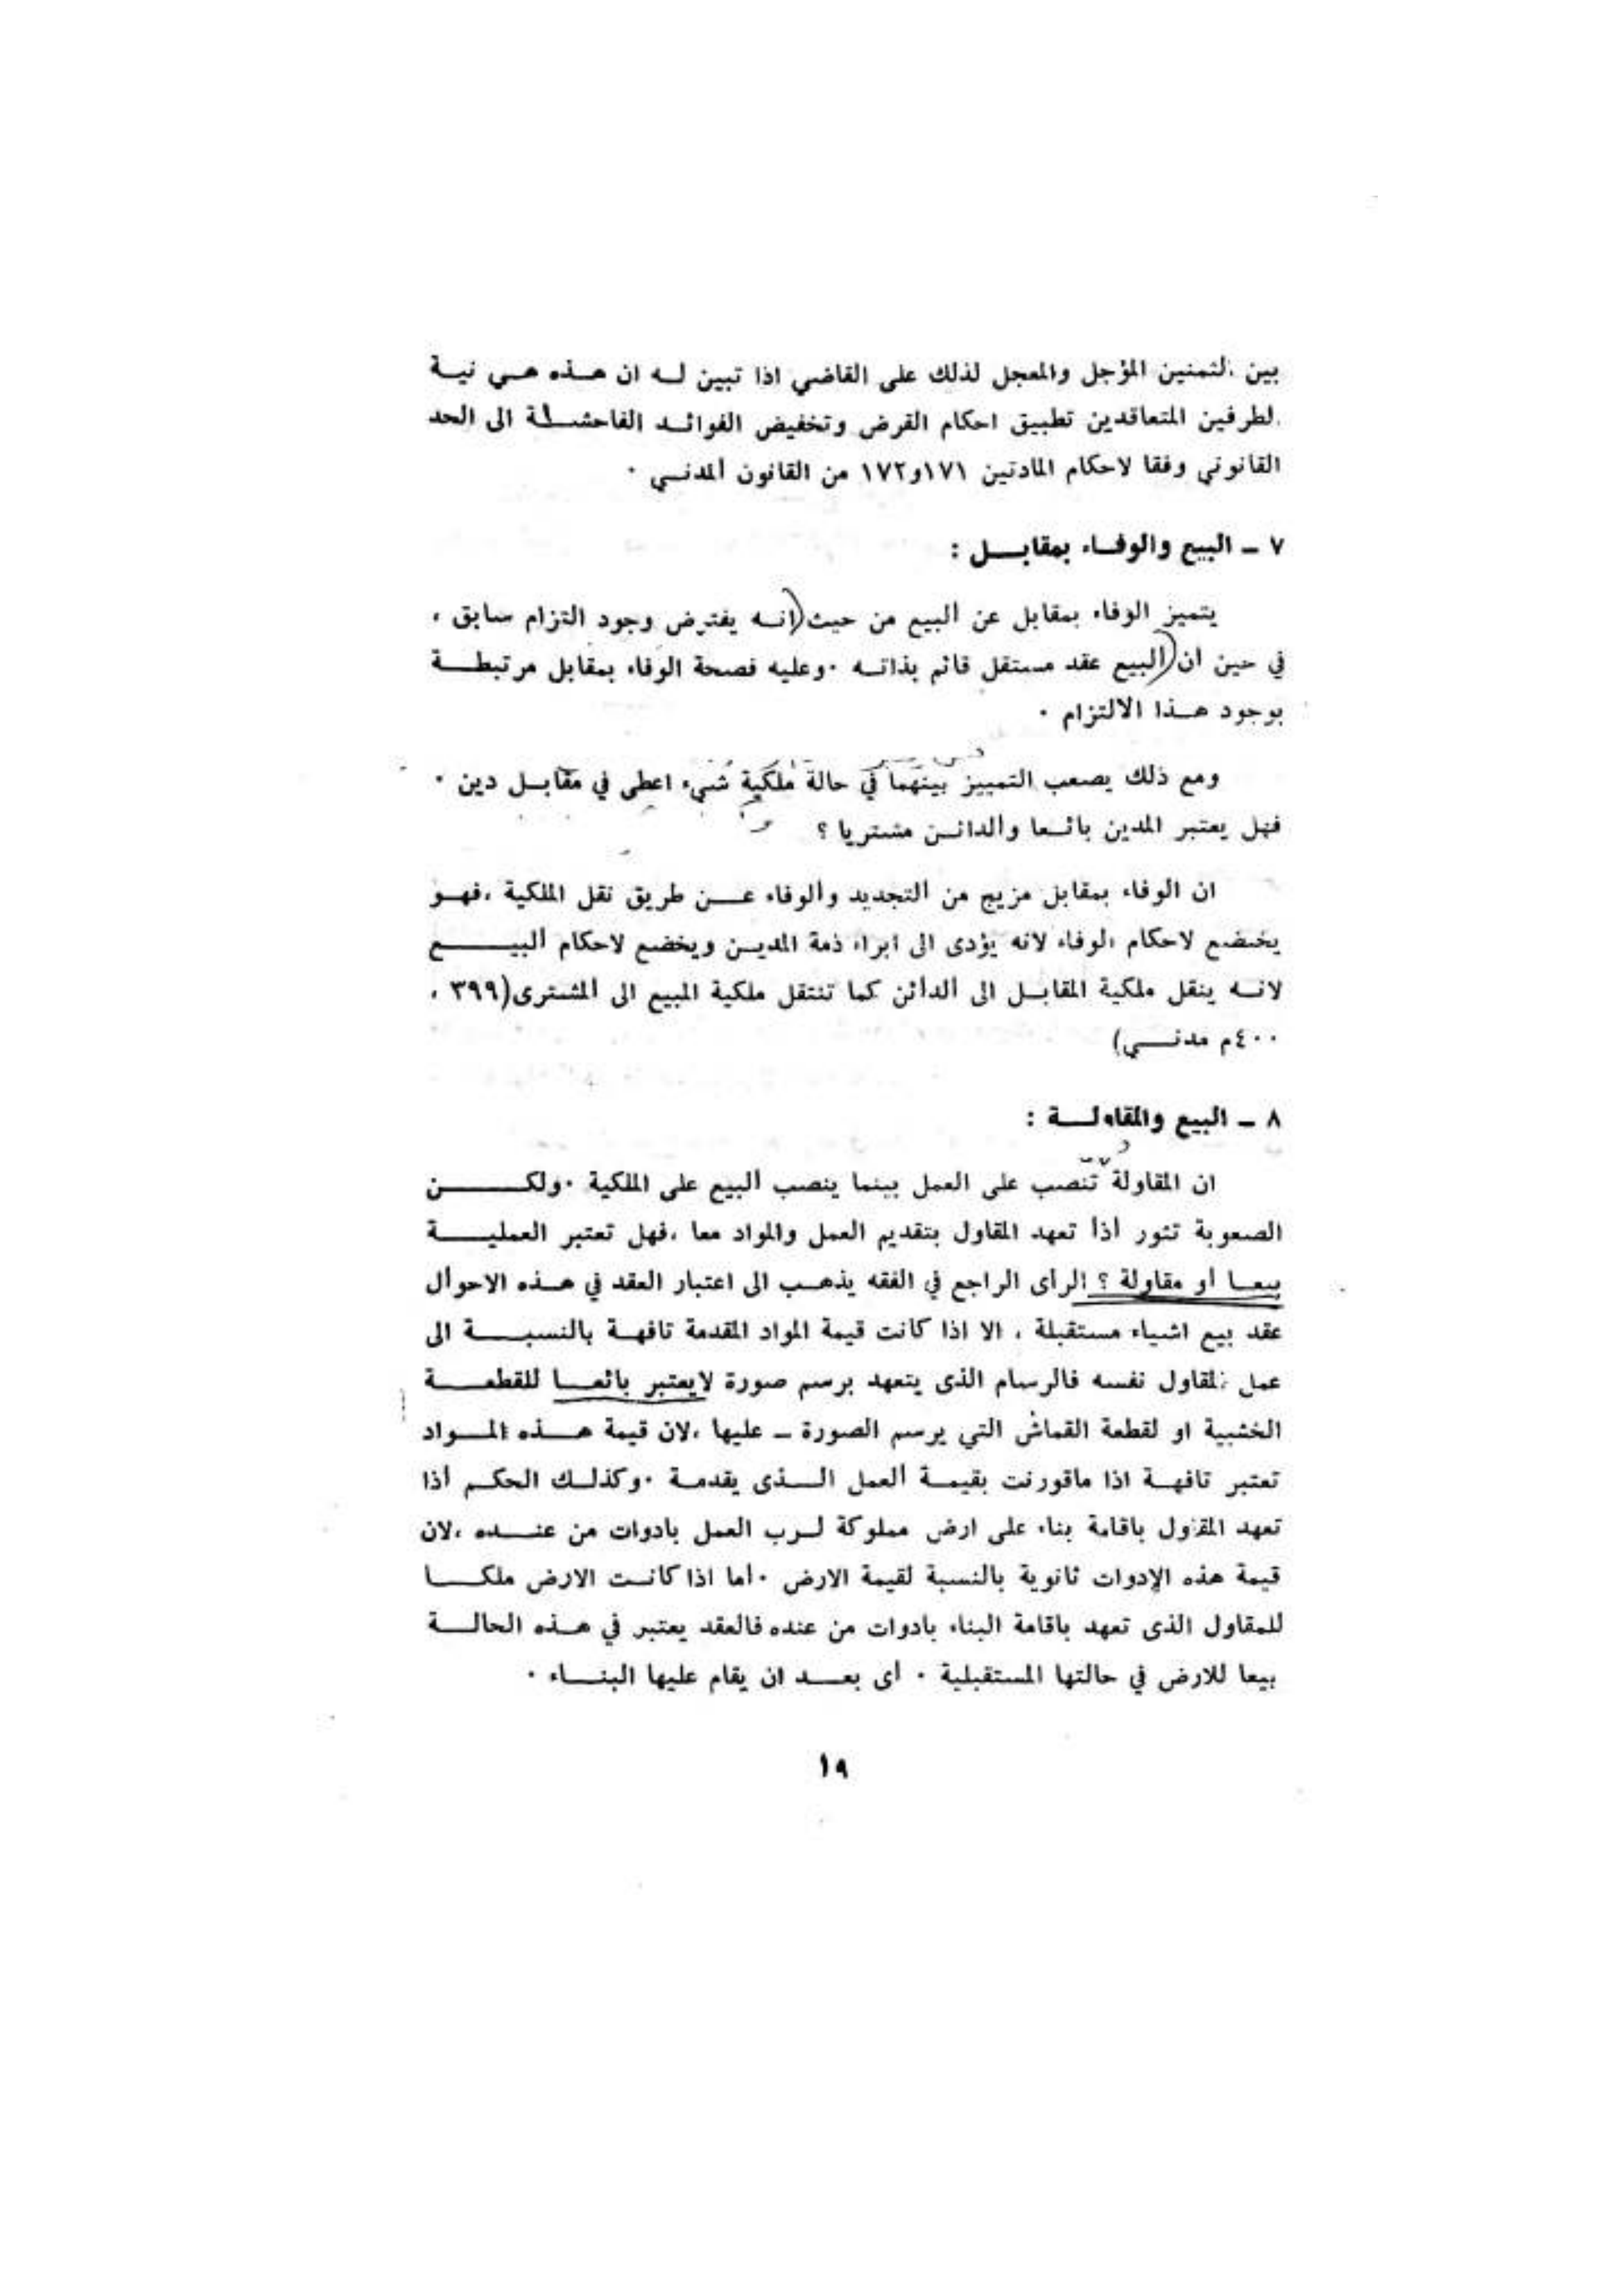 بين الثمنين المؤجل والمعجل لذلك على القاضي اذا تبين له ان هذه هي نية
الطرفين المتعاقدين تطبيق احكام القرض وتخفيض الفوائد الفاحشة الى الحد
القانوني وفقا لاحكام المادتين ١٧١و١٧٢ من القانون المدني ٠
٧ ـ البيع والوفاء بمقابل :
يتميز الوفاء بمقابل عن البيع من حيث (انه يفترض وجود التزام سابق ،
في حين ان (البيع عقد مستقل قائم بذاته ٠وعليه فصحة الوفاء بمقابل مرتبطة
بوجود هذا الالتزام ٠
ومع ذلك يصعب التمييز بينهما في حالة ملكية شيء اعطى في مقابل دين ٠
فهل يعتبر المدين بائعا والدائن مشتريا ؟
ان الوفاء بمقابل مزيج من التجديد والوفاء عن طريق نقل الملكية ،فهو
يخضع لاحكام الوفاء لانه يؤدى الى ابراء ذمة المدين ويخضع لاحكام البيع
لانه ينقل ملكية المقابل الى الدائن كما تنتقل ملكية المبيع الى المشترى(٣٩٩ ،
٤٠٠م مدني)
٨ ـ البيع والمقاولة :
ان المقاولة تنصب على العمل بينما ينصب البيع على الملكية ٠ولكن
الصعوبة تثور اذا تعهد المقاول بتقديم العمل والمواد معا ،فهل تعتبر العملية
بيعا أو مقاولة ؟ الرأى الراجع في الفقه يذهب الى اعتبار العقد في هذه الاحوال
عقد بيع اشياء مستقبلة ، الا اذا كانت قيمة المواد المقدمة تافهة بالنسبة الى
عمل المقاول نفسه فالرسام الذى يتعهد برسم صورة لايعتبر بائعا للقطعة
الخشبية او لقطعة القماش التي يرسم الصورة ـ عليها ،لان قيمة هذه المواد
تعتبر تافهة اذا ماقورنت بقيمة العمل الذى يقدمة ٠وكذلك الحكم أذا
تعهد المقاول باقامة بناء على ارض مملوكة لرب العمل بادوات من عنده ،لان
قيمة هذه الادوات ثانوية بالنسبة لقيمة الارض ٠أما اذا كانت الارض ملكا
للمقاول الذى تعهد باقامة البناء بادوات من عنده فالعقد يعتبر في هذه الحالة
بيعا للارض في حالتها المستقبلية ٠ أى بعد ان يقام عليها البناء ٠
١٩